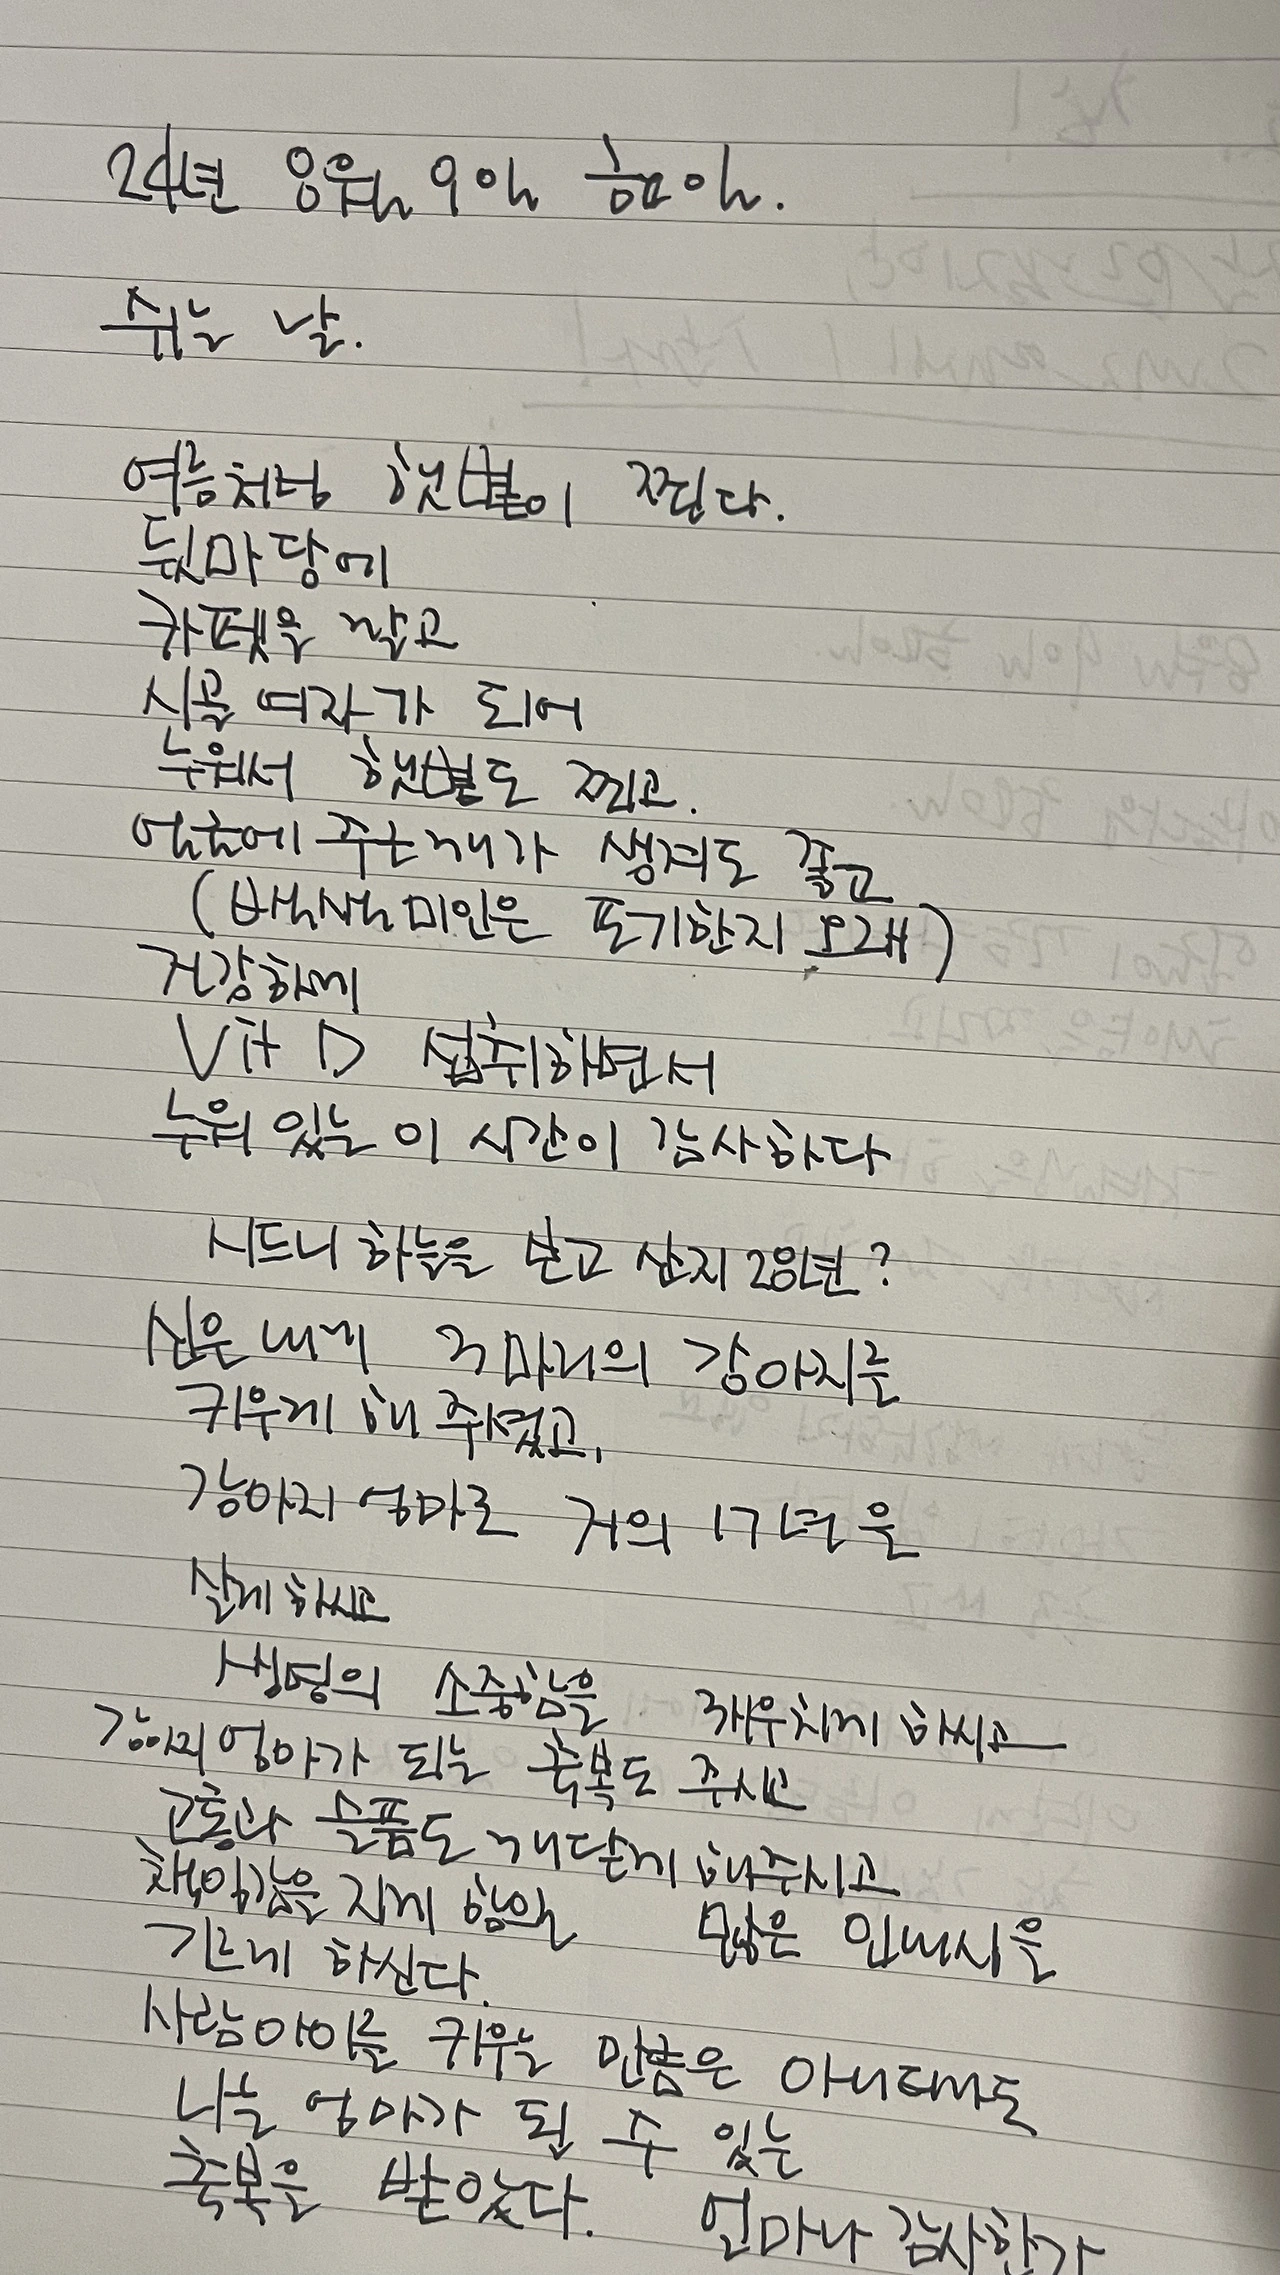 24년 8월 9일 금요일.
쉬는 날.
여름처럼 햇볕이 찐다.
뒷마당에
카펫을 깔고
시골 여자가 되어
누워서 햇볕도 쬐고.
얼굴에 주근깨가 생겨도 좋고
(백색미인은 포기한지 오래)
건강하게
Vit D 섭취하면서
누워 있는 이 시간이 감사하다
시드니 하늘을 보고 산지 28년?
신은 내게 3마리의 강아지를
키우게 해 주셨고,
강아지 엄마로 거의 17년을
살게 하시고
생명의 소중함을 깨우치게 하시고
강아지 엄마가 되는 축복도 주시고
고통과 슬픔도 깨닫게 해주시고
책임감을 지게 함으로 많은 인내심을
기르게 하신다.
사람아이를 키우는 만큼은 아니래도
나는 엄마가 될 수 있는
축복을 받았다. 얼마나 감사한가